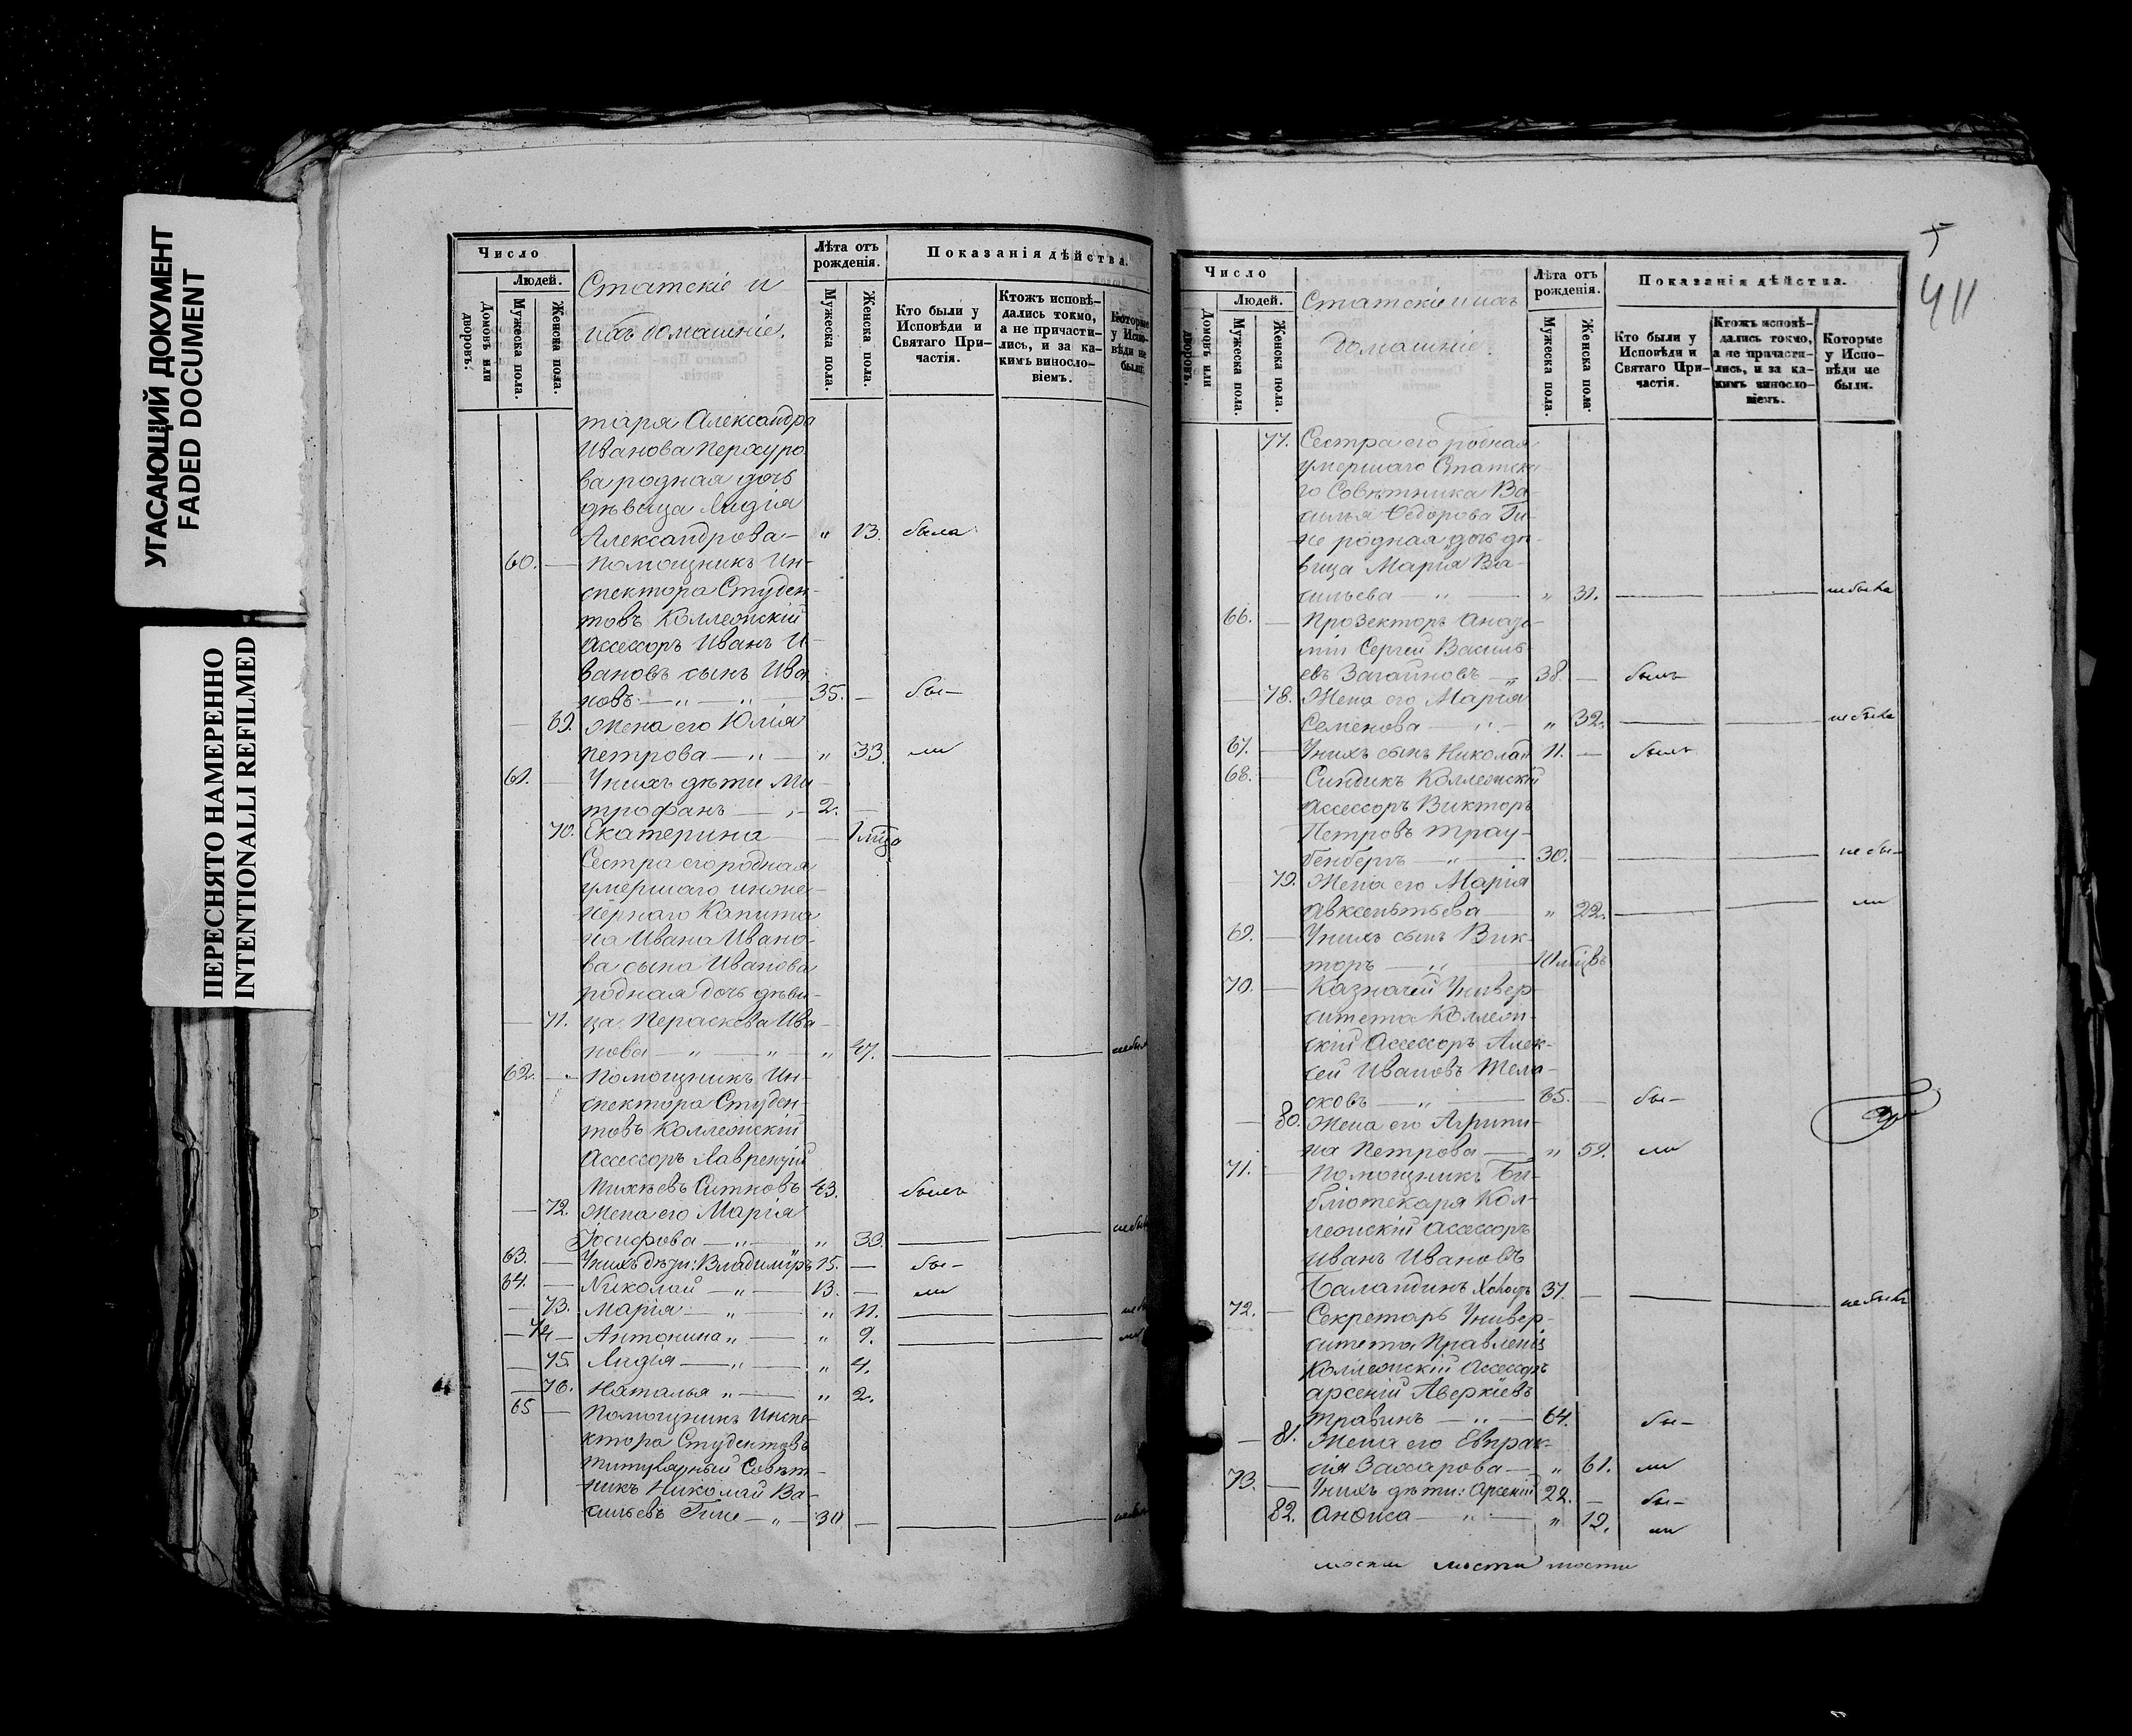 УГАСАЮЩИЙ ДОКУМЕНТ
FADED DOCUMENT
ПЕРЕСНЯТО НАМЕРЕННО
INTENTIONALLI REFILMED
Число
Людей.
Домовъ или дворовъ.
Мужеска пола.
Женска пола.
Статскіе и
ихъ домашніе.
Лѣта отъ рожденія.
Мужеска пола.
Женска пола.
Показанія дѣйства.
Кто были у Исповѣди и Святаго Причастія.
Ктожъ исповѣдались токмо, а не причастились, и за какимъ винословіемъ.
Которые у Исповѣди не были.
таря Александра
Иванова Перхуро
ва родная дочь
дѣвица Лидія
Александрова — " 13. была
60. — Помощникъ Ин-
спектора Студен-
товъ Коллежскій
Ассессоръ Иванъ И-
вановъ сынъ Ива
новъ — " — " — 35. — бы—
— 69. Жена его Юлія
Петрова — " — " 33. ли
61. — У нихъ дѣти Ми
трофанъ — " — 2. —
70. Екатерина —
Сестра его родная
умершаго инже-
нернаго Капита
на Ивана Ивано-
ва сына Иванова
родная дочь дѣви-
— 71. ца Параскева Ива
нова — " — " — " 47. — —
62. — Помощникъ Ин-
спектора Студен-
товъ Коллежскій
Ассессоръ Лаврентій
Михѣевъ Ситковъ 43. былъ
— 72. Жена его Марія
Іосифова — " — " 39. — —
63. — У нихъ дѣти: Владиміръ 15. — бы—
64. — Николай — " — 13. — ли
— 73. Марія — " — " 11. — —
— 74 — Антонина " — " 9. — —
— 75. Лидія — " — " 4.
— 76. Наталья " — " 2.
65 — Помощникъ Инспе-
ктора Студентовъ
титулярный Совѣт-
никъ Николай Ва-
сильевъ Гине — " — 30 — — —
411
Число
Людей.
Домовъ или дворовъ.
Мужеска пола.
Женска пола.
Статскіе и ихъ
домашніе.
Лѣта отъ рожденія.
Мужеска пола.
Женска пола.
Показанія дѣйства.
Кто были у Исповѣди и Святаго Причастія.
Ктожъ исповѣдались токмо, а не причастились, и за какимъ винословіемъ.
Которые у Исповѣди не были.
77. Сестра его родная
умершаго Статска
го Совѣтника Ва-
силья Ѳедорова Ги-
не родная дочь дѣ-
вица Марія Ва-
сильева — " — " 31. — — не была
66. — Прозекторъ Анато-
міи Сергей Василь-
евъ Загайновъ — " 38. — былъ
— 78. Жена его Марія
Семенова — " — " 32. — — не была
67. — У нихъ сынъ Николай 11. — былъ
68. — Синдикъ Коллежскій
Ассессоръ Викторъ
Петровъ Трау-
бенбергъ — " — 30. — — — не бы—
— 79. Жена его Марія
Авксентьева — " 22. — — ли
69. — У нихъ сынъ Вик-
торъ — " —
70. — Казначей Универ
ситета Коллеж-
скій Ассессоръ Алек-
сей Ивановъ
сковъ — " — 65. — бы—
— 80. Жена его Агрипи-
на Петрова — " 59. ли
71. — Помощникъ Би-
бліотекаря Кол-
лежскій Ассессоръ
Иванъ Ивановъ
Баландинъ Холостъ 37. — — — не былъ
72. — Секретарь Универ-
ситета Правленія
Коллежскій Ассессоръ
Арсеній Аверкіевъ
Травинъ — " — 64. бы—
— 81. Жена его Евпрак-
сія Захарова — " 61. ли
73. — У нихъ дѣти: Арсеній 22. — бы—
82. Анѳиса — " — " 19. ли